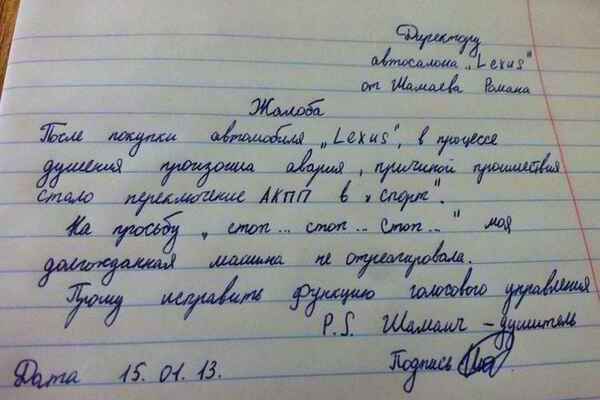 Директору
автосалона „Lexus"
от Шамаева Романа
Жалоба
После покупки автомобиля „Lexus", в процессе
душения произошла авария, причиной проишествия
стало переключение АКПП в „спорт".
На просьбу „стоп... стоп... стоп..." моя
долгожданная машина не отреагировала.
Прошу исправить функцию голосового управления
P.S. Шамаич – душитель
Дата 15.01.13. Подпись